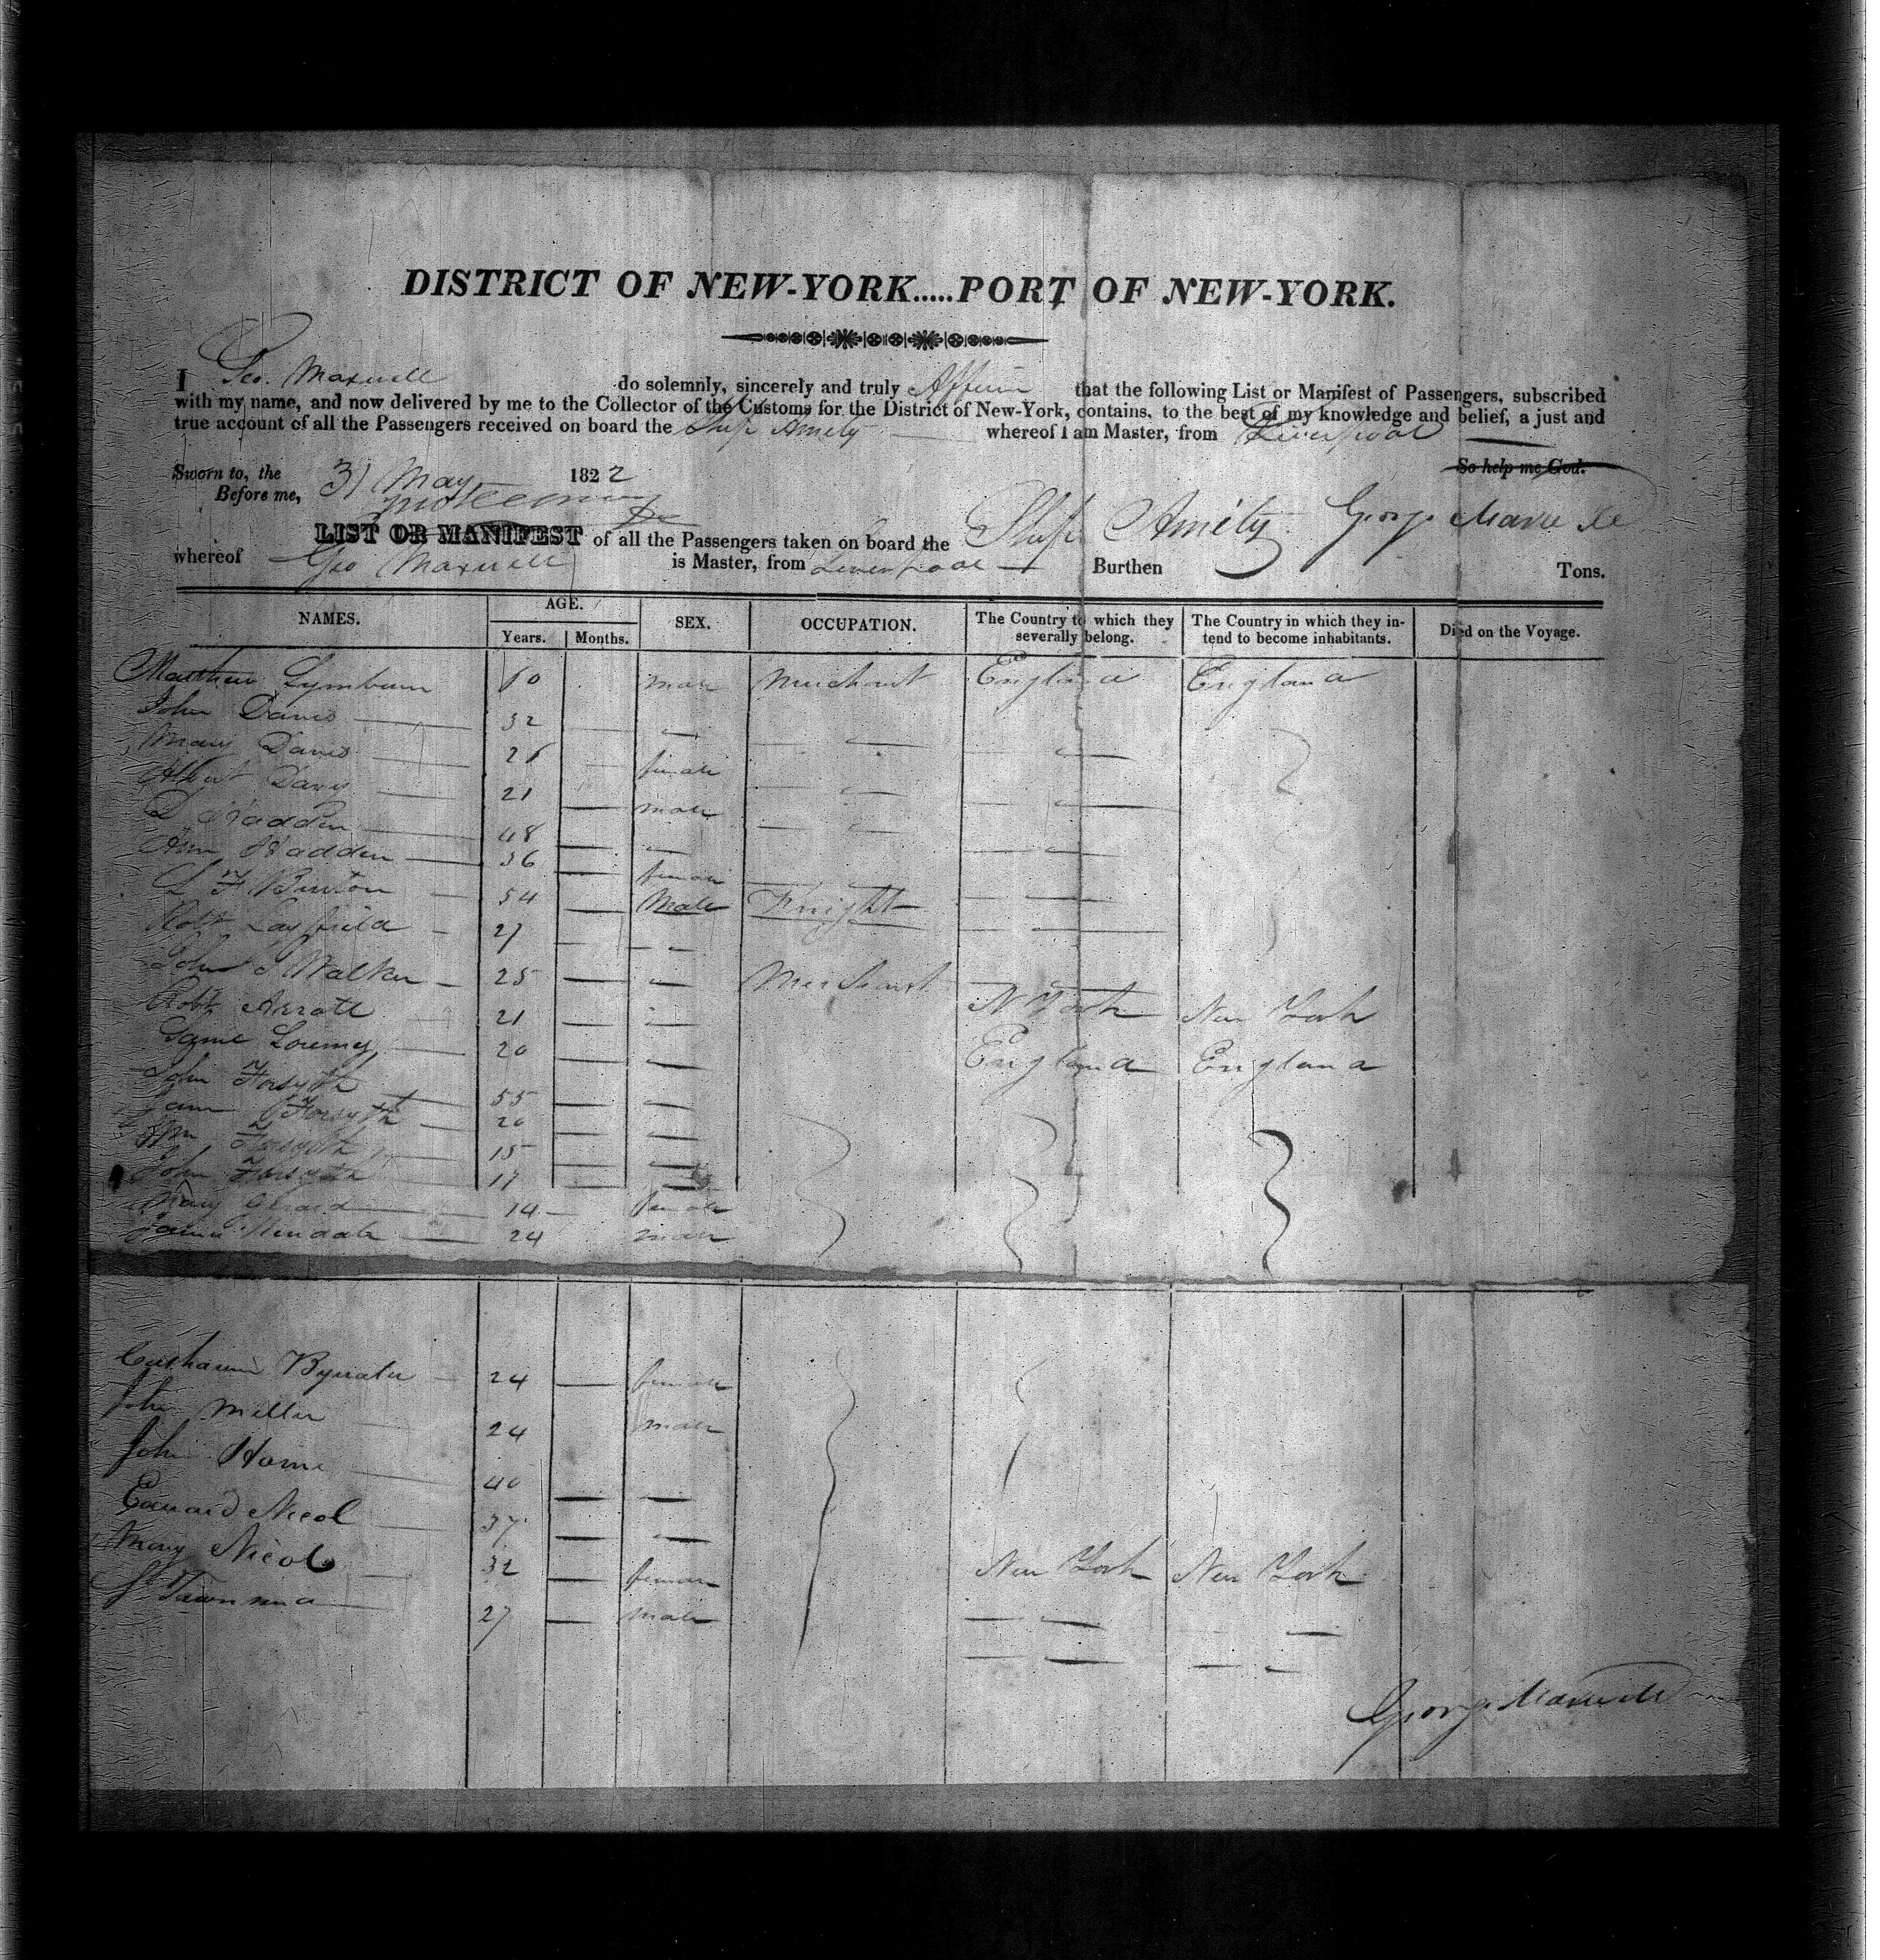 DISTRICT OF NEW-YORK.....PORT OF NEW-YORK.
I Geo. Maxwell do solemnly, sincerely and truly Affirm that the following List or Manifest of Passengers, subscribed
with my name, and now delivered by me to the Collector of the Customs for the District of New-York, contains, to the best of my knowledge and belief, a just and
true account of all the Passengers received on board the Ship Amity whereof I am Master, from Liverpool
So help me God.
Sworn to, the 31 May 1822
Before me,
George Maxwell
LIST OR MANIFEST of all the Passengers taken on board the Ship Amity
whereof Geo Maxwell is Master, from Liverpool Burthen Tons.
NAMES. AGE. SEX. OCCUPATION. The Country to which they severally belong. The Country in which they intend to become inhabitants. Died on the Voyage.
Years. Months.
Matthew Lymburn 60 male Merchant England England
John Davis 32
Mary Davis 26 female
Albert Davis 21 male
Hadden 48
Ann Hadden 36 female
Burton 54 Male
Robt Layfield 27
John Walker 25 Merchant N York New York
Robt 21 England England
20
John Forsyth 55
Forsyth 20
Wm Forsyth 15
John Forsyth 17
Mary 14 female
James 24 male
Catharine 24 female
John Miller 24 male
John Horne 40
Edward Nicol 37 New York New York
Mary Nicol 32 female
27 male
George Maxwell